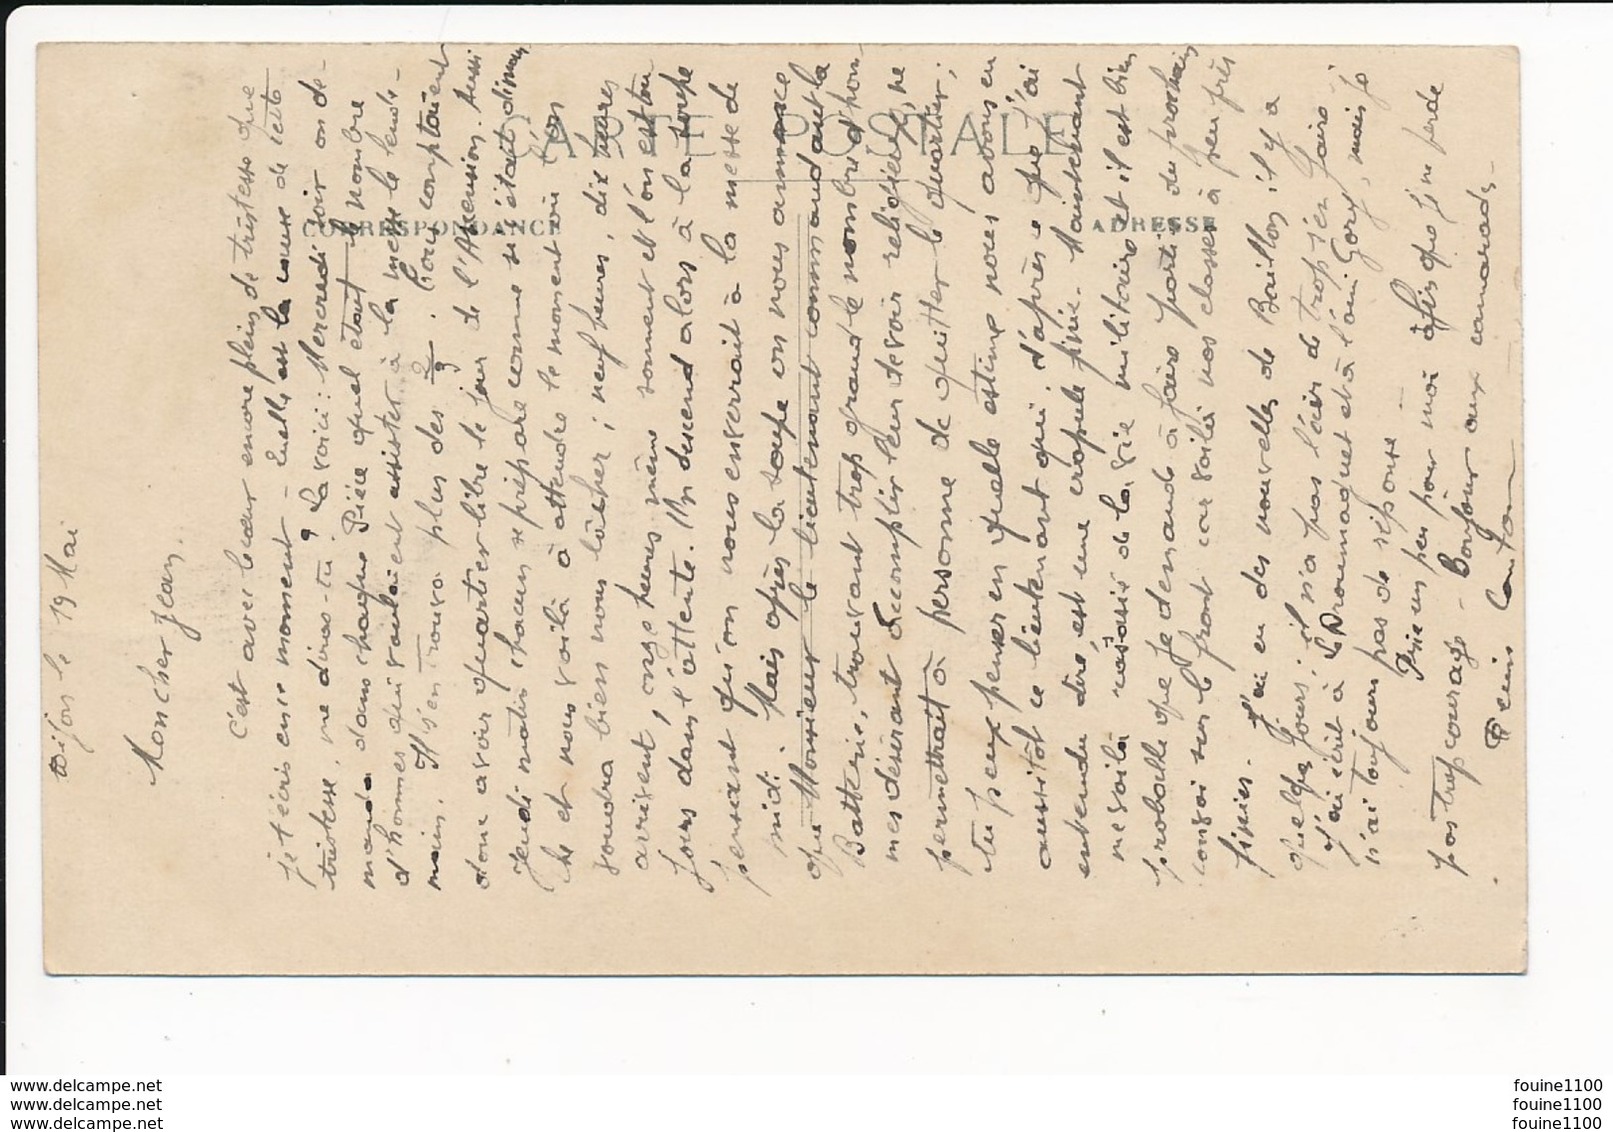 Dijon le 19 Mai
Mon cher Jean.
C'est avec le cœur encore plein de tristesse que
je t'écris en ce moment - Quelle est la cause de cette
tristesse, me diras-tu ? La voici : Mercredi soir on de-
manda dans chaque Pièce quel était le nombre
d'hommes qui voulaient assister à la messe le lende-
main. Il s'en trouva plus des 2/3. Tous comptaient
donc avoir quartier libre le jour de l'Ascension. Aussi
Jeudi matin chacun se prépare comme si c'était diman
che et nous voilà à attendre le moment où l'on
voudra bien nous lâcher ; neuf heures, dix heures
arrivent, onze heures même sonnent et l'on est tou
jours dans l'attente. On descend alors à la soupe
pensant qu'on nous enverrait à la messe de
midi. Mais après la soupe on nous annonce
que Monsieur le lieutenant commandant la
Batterie, trouvant trop grand le nombre d'hom-
mes désirant accomplir leur devoir religieux, ne
permettrait à personne de quitter le quartier ;
tu peux penser en quelle estime nous avons eu
aussitôt ce lieutenant qui, d'après ce que j'ai
entendu dire, est une crapule finie. Maintenant
me voilà rassasié de la vie militaire et il est bien
probable que je demande à faire parti du prochain
convoi sur le front car voilà nos classes à peu près
finies. J'ai eu des nouvelles de Baillon il y a
quelques jours ; il n'a pas l'air de trop s'en faire.
J'ai écrit à Droumaguet et à l'ami Gory, mais je
n'ai toujours pas de réponse -
Prie un peu pour moi afin que je ne perde
pas trop courage - Bonjour aux camarades -
CARTE POSTALE
CORRESPONDANCE
ADRESSE
www.delcampe.net
www.delcampe.net
www.delcampe.net
fouine1100
fouine1100
fouine1100